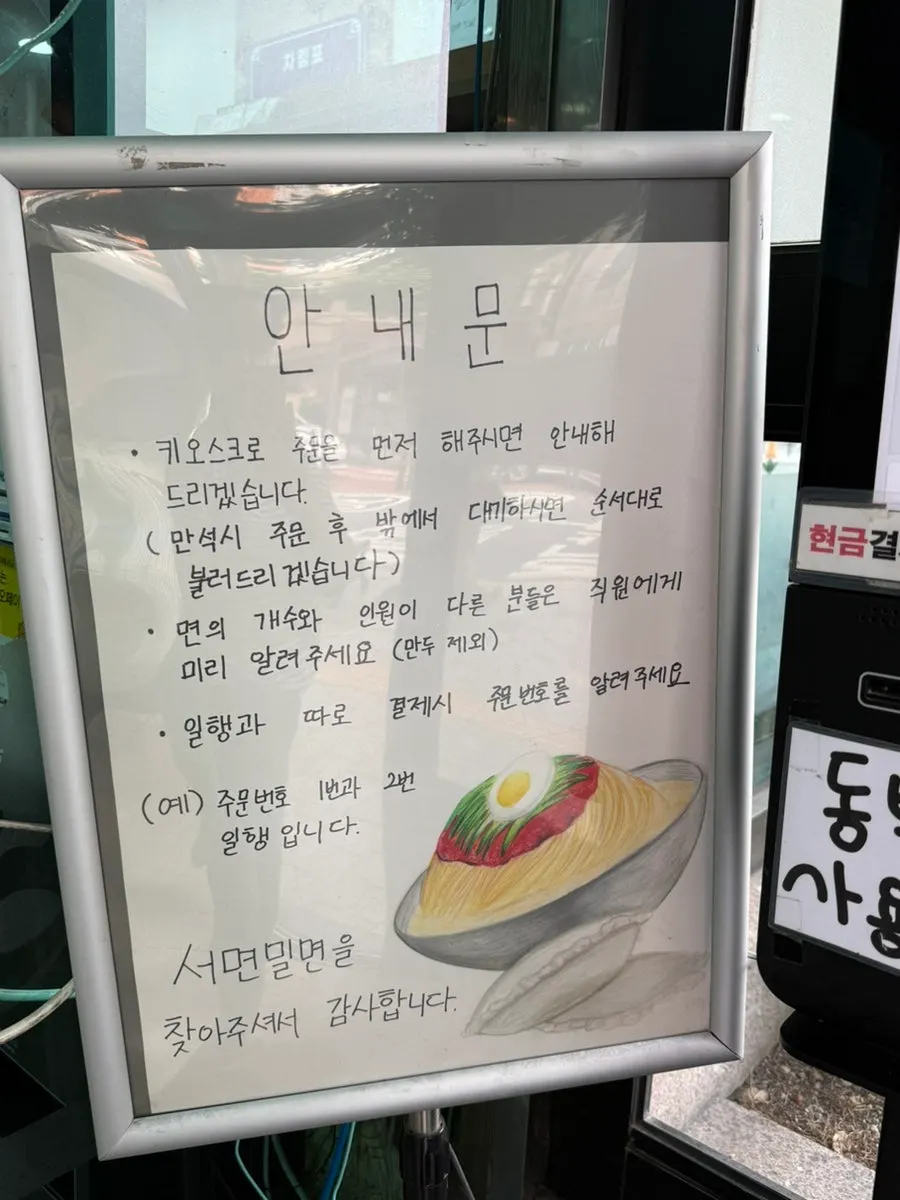 안내문
• 키오스크로 주문을 먼저 해주시면 안내해
드리겠습니다.
(만석시 주문 후 밖에서 대기하시면 순서대로
불러드리겠습니다)
• 면의 개수와 인원이 다른 분들은 직원에게
미리 알려주세요 (만두 제외)
• 일행과 따로 결제시 주문번호를 알려주세요
(예) 주문번호 1번과 2번
일행입니다.
서면밀면을
찾아주셔서 감사합니다.
현금결
동
사용